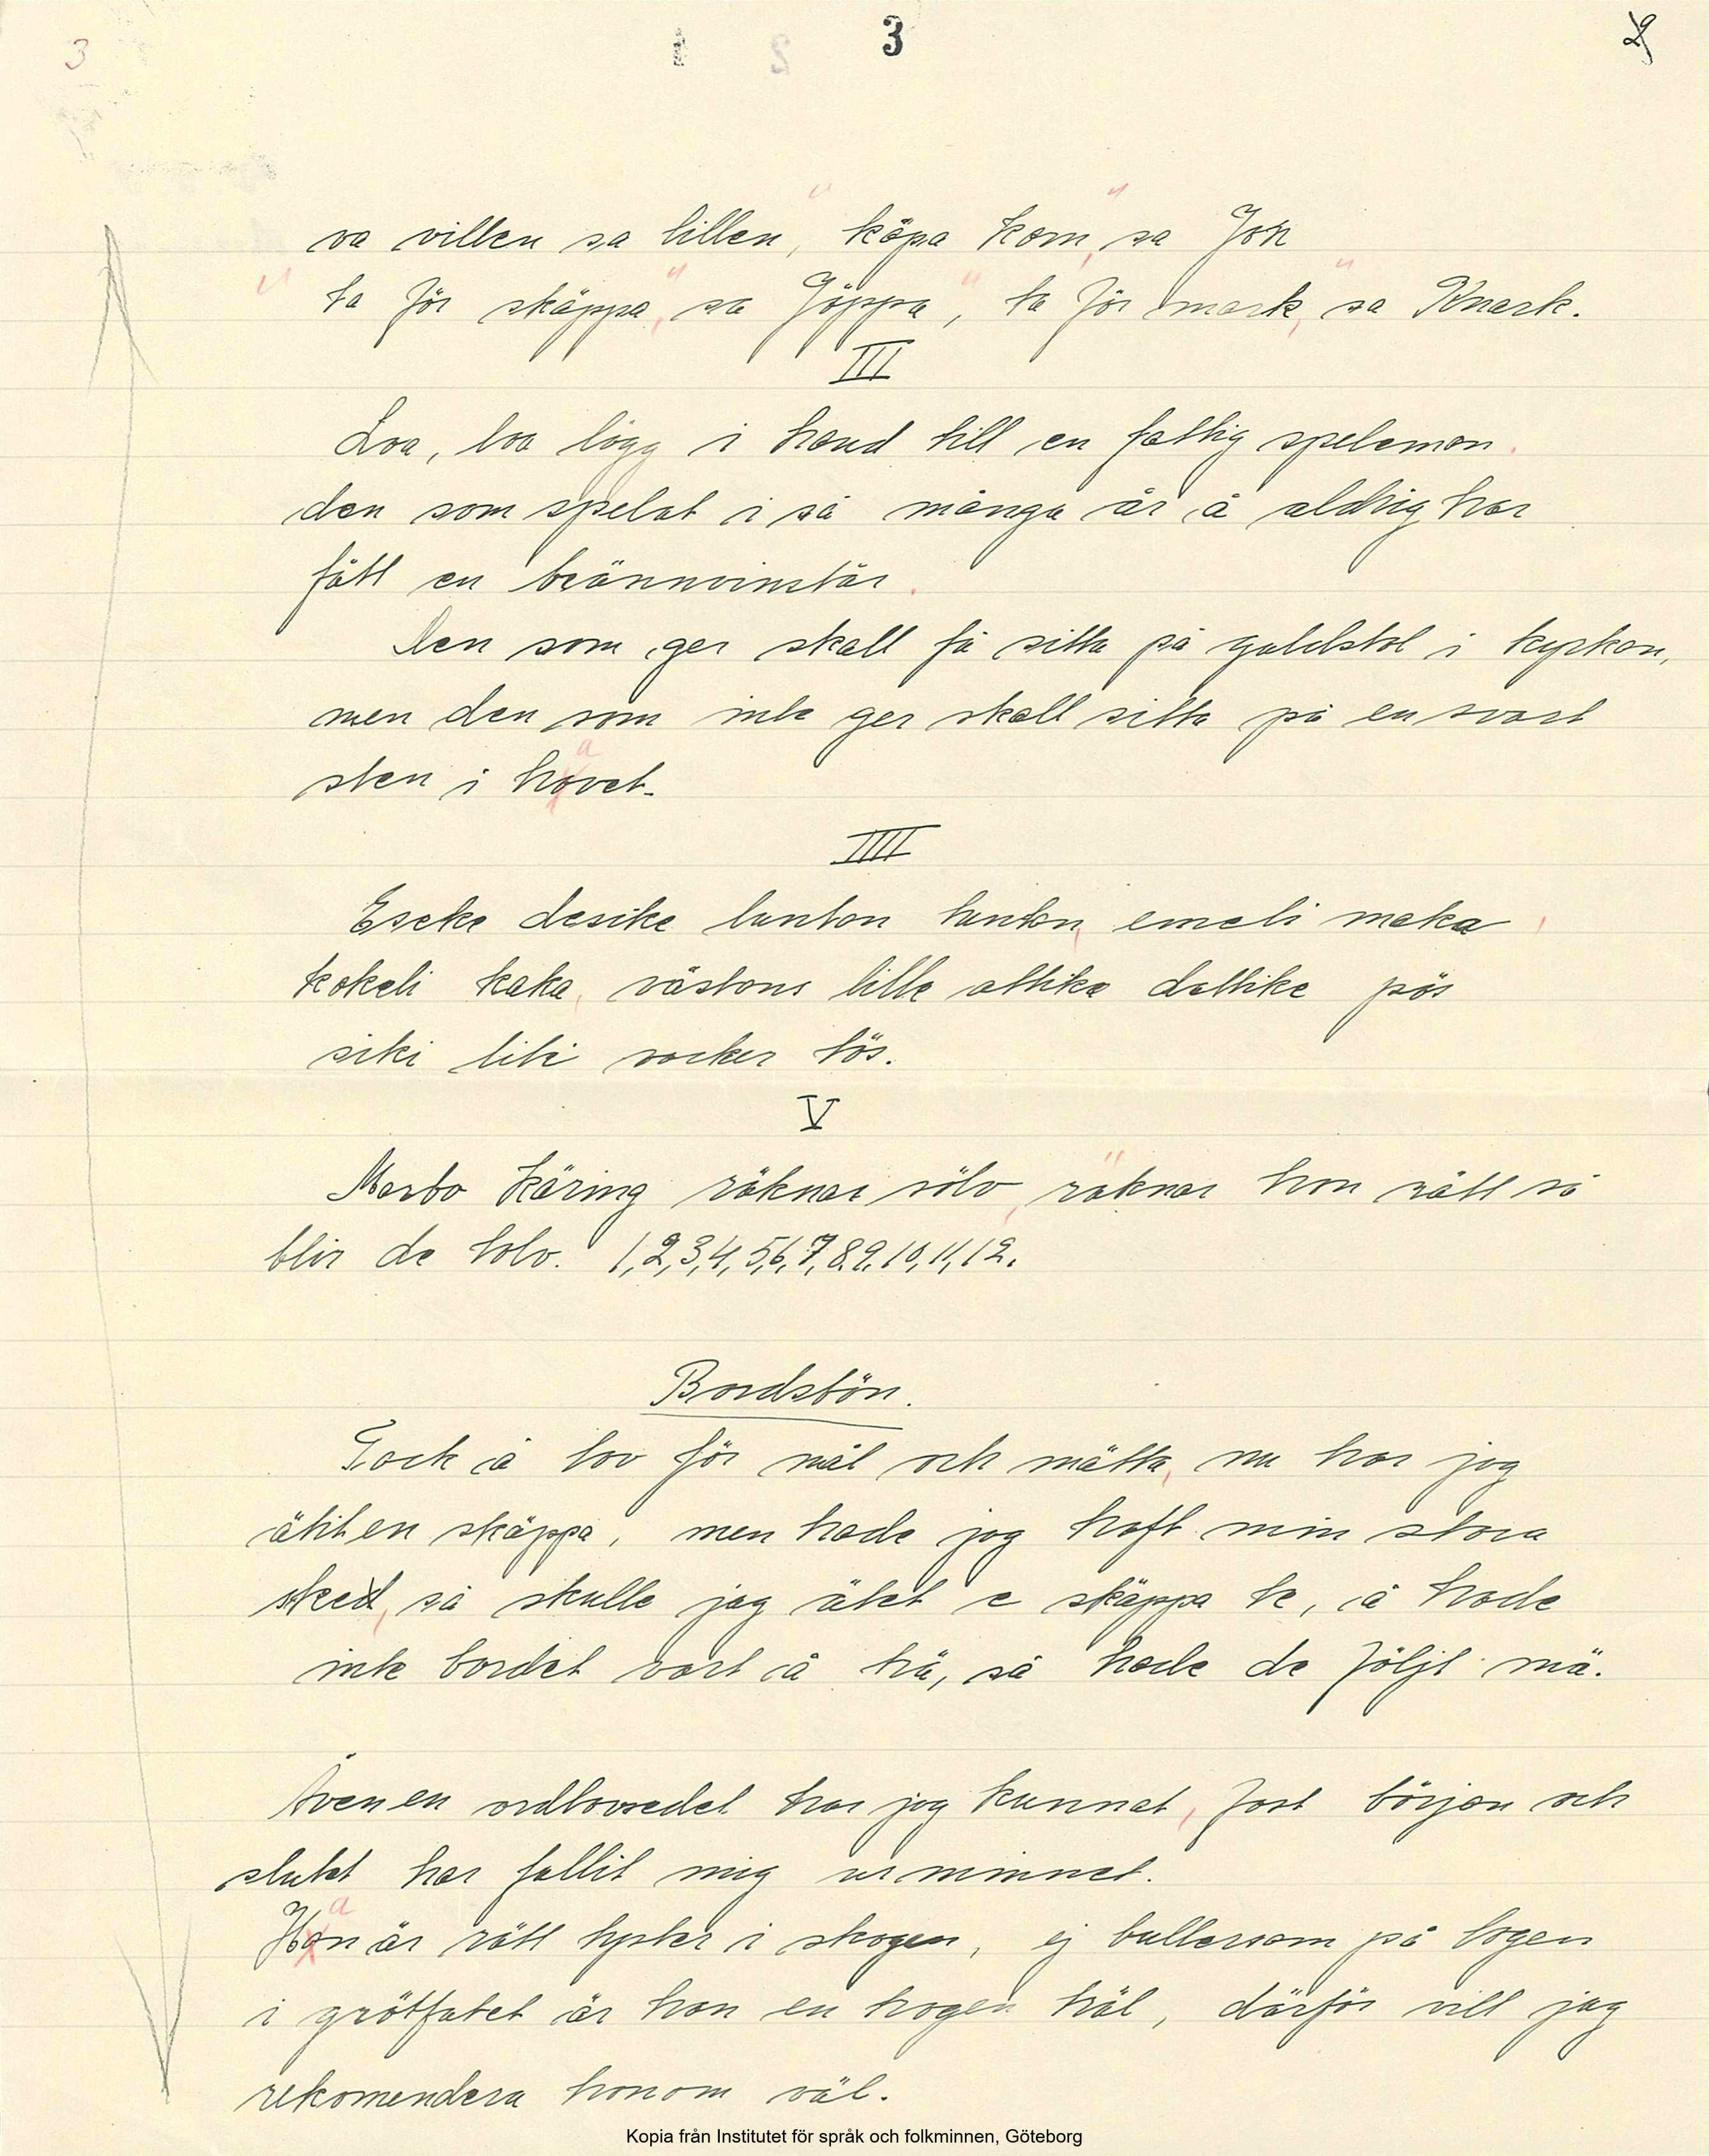 3 1 2 3
va villen sa lillen, "köpa korn," sa Jon
"ta för skäppa," sa Jöppa, "ta för mark," sa Knark.
III
Loa, loa lögg i hand till en fattig speleman.
den som spelat i så många år å aldrig har
fått en brännvinstår.
Den som ger skall få sitta på guldstol i kyrkan,
men den som inte ger skall sitta på en svart
sten i havet.
IIII
Eseke desike lunton tunton, emeli maka,
kokeli kaka, västons lille attike dattike pös
siki liki socker tös.
V
Marbo käring räknar sölv, räknar hon rätt så
blir de tolv. 1,2,3,4,5,6,7,8,9,10,11,12.
Bordsbön.
Tack å lov för mål och mätta, nu har jag
ätit en skäppa, men hade jag haft min stora
sked, så skulle jag ätet e skäppa te, å hade
inte bordet vart å trä, så hade de följt mä.
Även en ordlovsedel har jag kunnat, fast början och
slutet har fallit mig ur minnet.
Han är rätt tyster i skogen, ej bullersam på logen
i grötfatet är han en trogen träl, därför vill jag
rekomendera honom väl.
Kopia från Institutet för språk och folkminnen, Göteborg